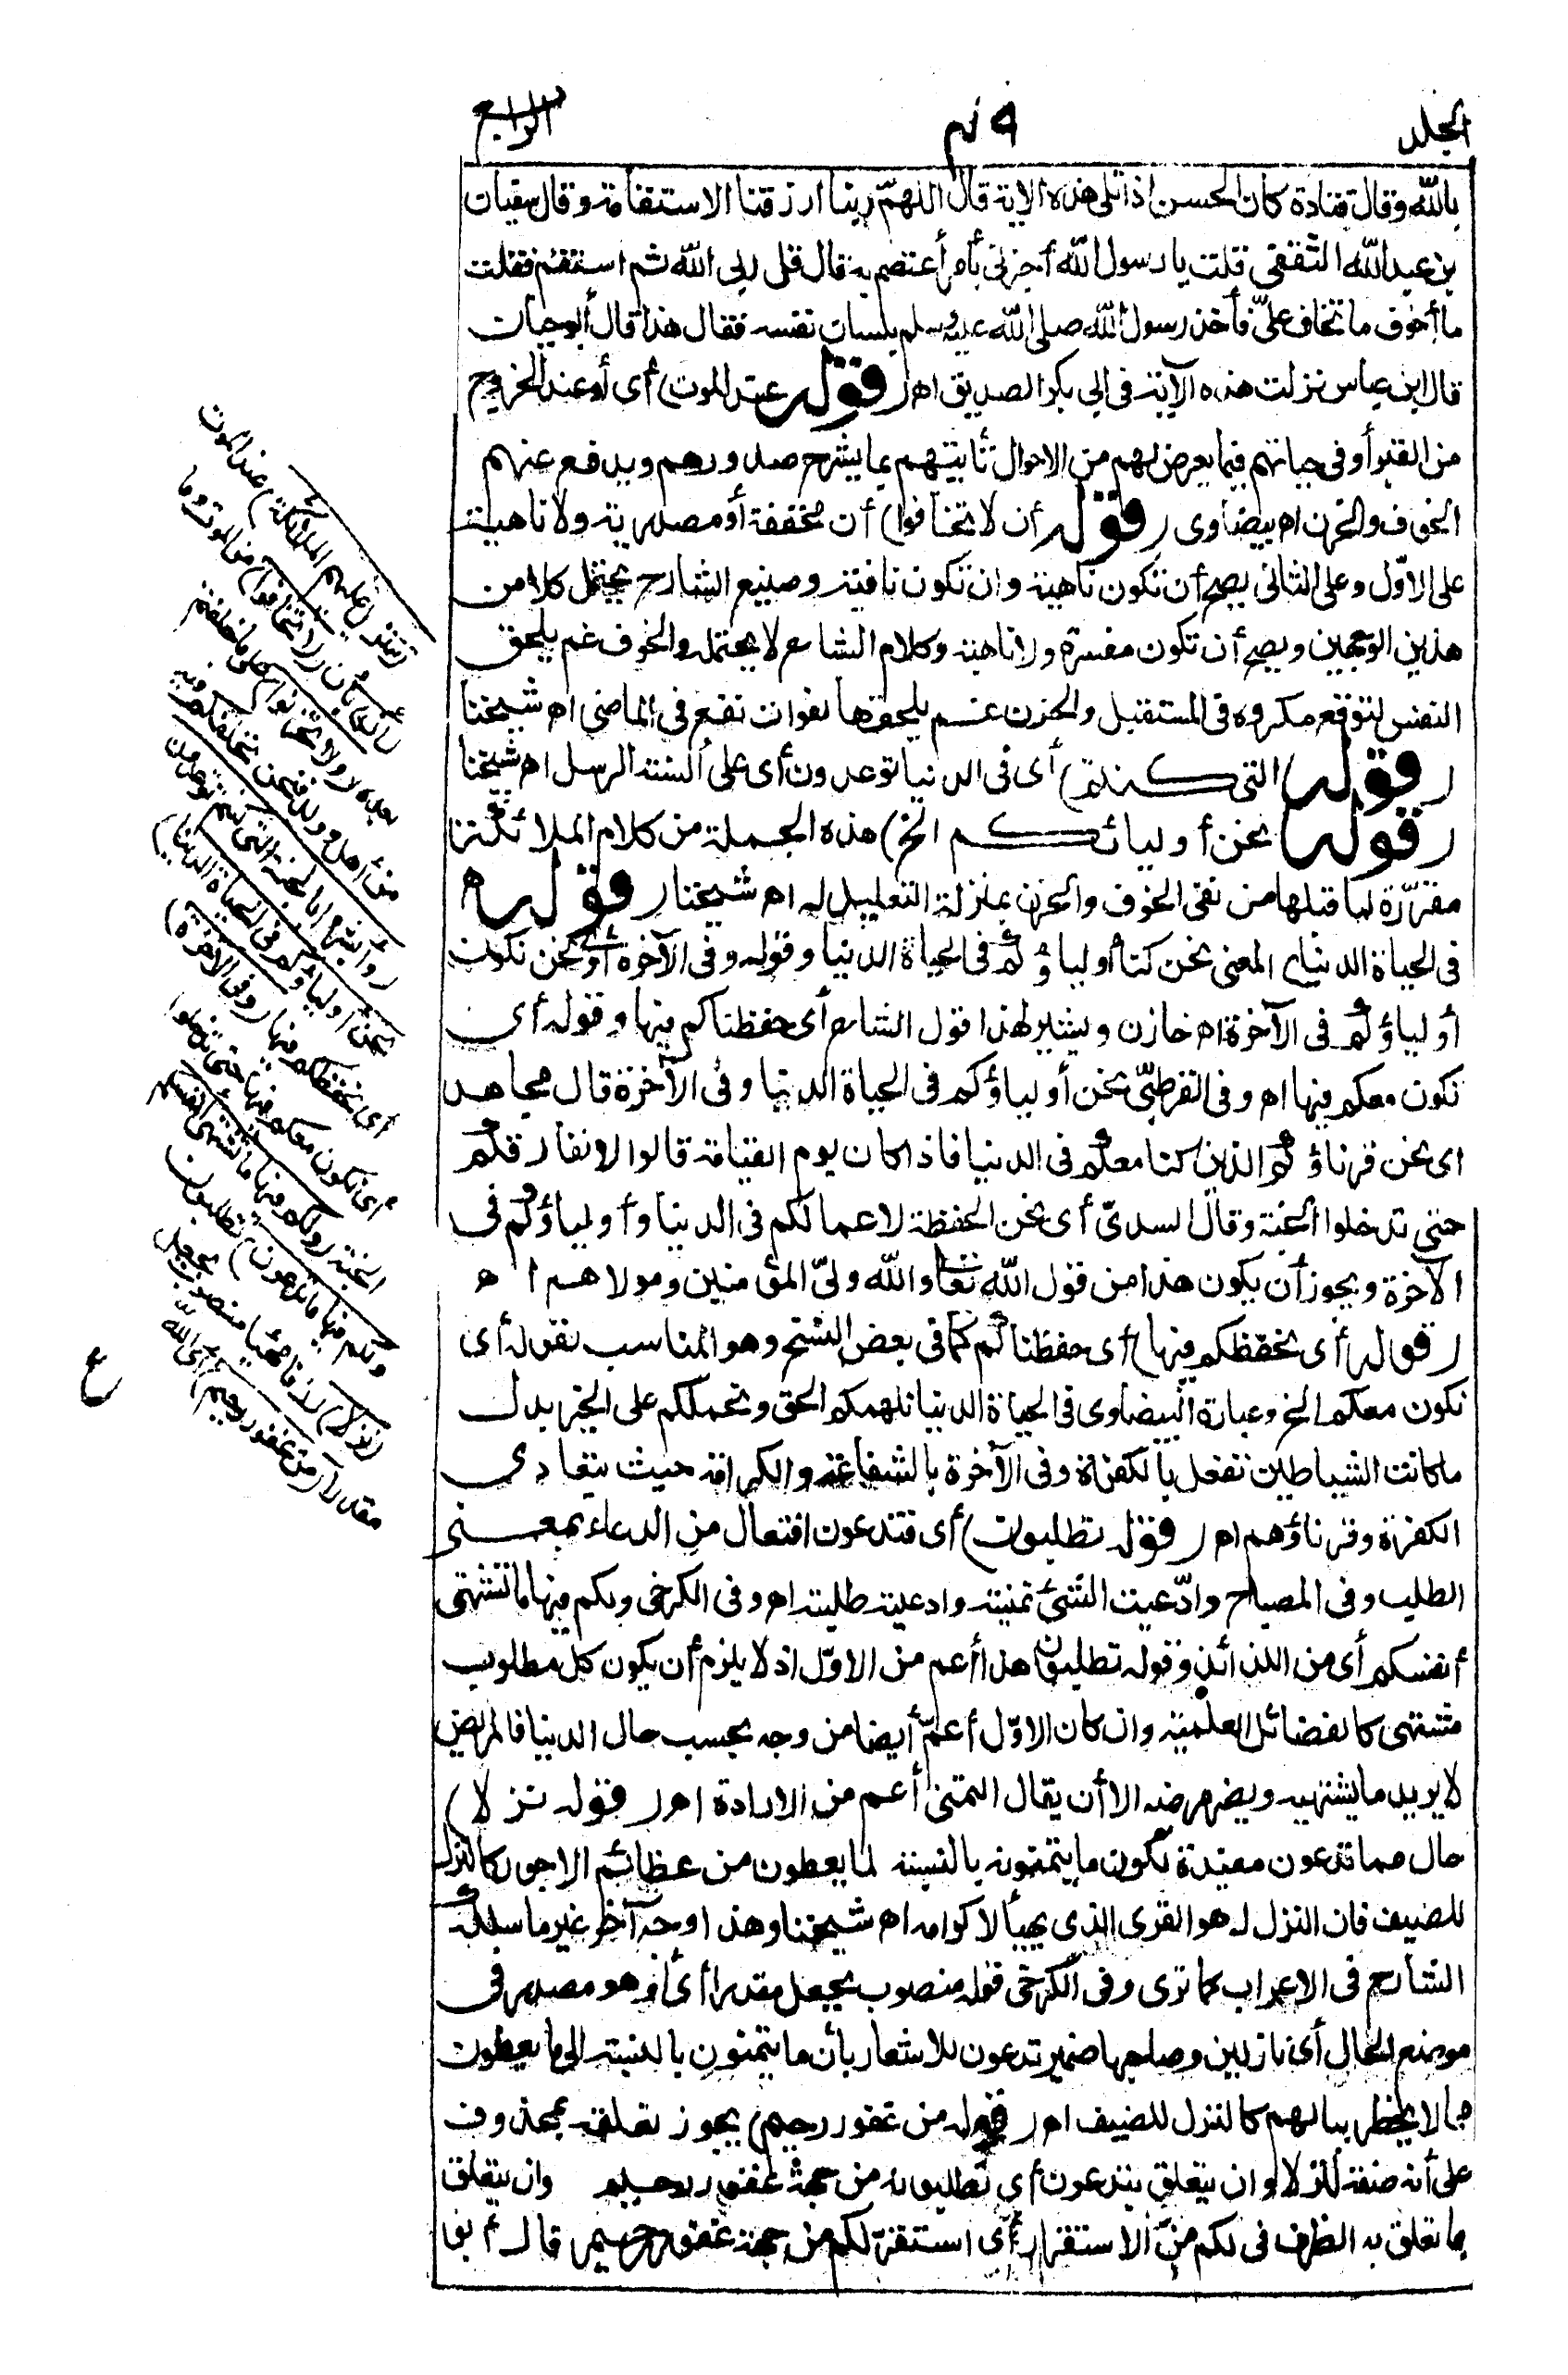 المجلد
٤٩
الرابع
بالله وقال قتادة كان الحسن اذا تلى هذه الاية قال اللهمّ ربنا ارزقنا الاستقامة وقال سفيان
بن عبد الله الثقفى قلت يا رسول الله أخبرنى بأمر أعتصم به قال قل ربى الله ثم استقم فقلت
ما أخوف ما تخاف علىّ فأخذ رسول الله صلى الله عليه وسلم بلسان نفسه فقال هذا قال أبو حيان
قال ابن عباس نزلت هذه الآية فى ابى بكر الصديق اھ (قوله عند الموت) أى أو عند الخروج
من القبر أو فى حياتهم فيما يعرض لهم من الاحوال تأتيهم بما يشرح صدورهم ويدفع عنهم
الخوف والحزن اھ بيضاوى (قوله أن لا تخافوا) أن مخففة أو مصدرية ولا ناهية
على الاوّل وعلى الثانى يصح أن تكون ناهية وان تكون نافية وصنيع الشارح يحتمل كلا من
هذين الوجهين ويصح أن تكون مفسرة ولا ناهية وكلام الشارح لا يحتمله والخوف غم يلحق
النفس لتوقع مكروه فى المستقبل والحزن غم يلحقها لفوات نفع فى الماضى اھ شيخنا
(قوله التى كنتم) أى فى الدنيا توعدون أى على ألسنة الرسل اھ شيخنا
(قوله نحن أولياؤكم الخ) هذه الجملة من كلام الملائكة
مقرّرة لما قبلها من نفى الخوف والحزن بمنزلة التعليل له اھ شيخنا (قوله
فى الحياة الدنيا) المعنى نحن كنا أولياؤكم فى الحياة الدنيا وقوله وفى الآخرة أى ونحن نكون
أولياؤكم فى الآخرة اھ خازن ويشير لهذا قول الشارح أى حفظناكم فيها وقوله أى
نكون معكم فيها اھ وفى القرطبىّ نحن أولياؤكم فى الحياة الدنيا وفى الآخرة قال مجاهد
اى نحن قرناؤكم الذين كنا معكم فى الدنيا فاذا كان يوم القيامة قالوا لا نفارقكم
حتى تدخلوا الجنة وقال السدىّ أى نحن الحفظة لاعمالكم فى الدنيا وأولياؤكم فى
الآخرة ويجوز أن يكون هذا من قول الله تعالى والله ولىّ المؤمنين ومولاهم اھ
(قوله أى نحفظكم فيها) أى حفظناكم كما فى بعض النسخ وهو المناسب لقوله أى
نكون معكم الخ وعبارة البيضاوى فى الحياة الدنيا نلهمكم الحق ونحملكم على الخير بدل
ما كانت الشياطين تفعل بالكفرة وفى الآخرة بالشفاعة والكرامة حيث يتعادى
الكفرة وقرناؤهم اھ (قوله تطلبون) أى فتدعون افتعال من الدعاء بمعنى
الطلب وفى المصباح وادّعيت الشئ تمنيته وادعيته طلبته اھ وفى الكرخى ولكم فيها ما تشتهى
أنفسكم أى من اللذائذ وقوله تطلبون هذا أعم من الاوّل اذ لا يلزم أن يكون كل مطلوب
مشتهى كالفضائل العلمية وان كان الاوّل أعمّ أيضا من وجه بحسب حال الدنيا فالمريض
لا يريد ما يشتهيه ويضر مرضه الا أن يقال التمنى أعم من الارادة اھ (قوله نزلا)
حال مما تدعون مفيدة لكون ما يتمنونه بالنسبة لما يعطون من عظائم الاجور كالنزل
للضيف فان النزل له هو القرى الذى يهيأ لاكرامه اھ شيخنا وهذا وجه آخر غير ما سلكه
الشارح فى الاعراب كما ترى وفى الكرخى قوله منصوب بجعل مقدرا أى أو هو مصدر فى
موضع الحال أى نازلين وصاحبها ضمير تدعون للاشعار بأن ما يتمنون بالنسبة الى ما يعطون
مما لا يخطر ببالهم كالنزل للضيف اھ (قوله من غفور رحيم) يجوز تعلقه بمحذوف
على أنه صفة لنزلا وان يتعلق بتدعون أى تطلبونه من جهة غفور رحيم وان يتعلق
بما تعلق به الظرف فى لكم من الاستقرار أى استقرّ لكم من جهة غفور رحيم قال أبو
(تتنزل عليهم الملائكة) عند الموت
(أن) بأن (لا تخافوا) من الموت وما
بعده (ولا تحزنوا) على ما خلفتم
من أهل وولد فنحن نخلفكم فيه
(وأبشروا بالجنة التى كنتم توعدون
نحن أولياؤكم فى الحياة الدنيا)
أى نحفظكم فيها (وفى الآخرة)
أى نكون معكم فيها حتى تدخلوا
الجنة (ولكم فيها ما تشتهى أنفسكم
ولكم فيها ما تدعون) تطلبون
(نزلا) رزقا مهيأ منصوب بجعل
مقدرا (من غفور رحيم) أى الله
ع